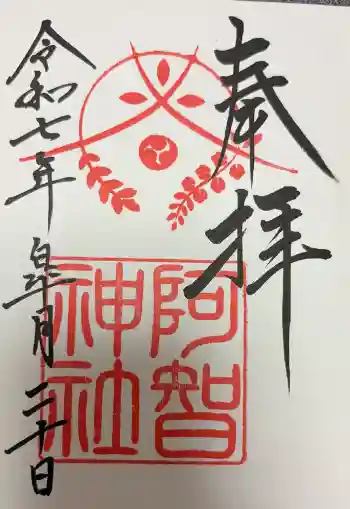 奉拝
阿智
神社
令和七年皐月二十日